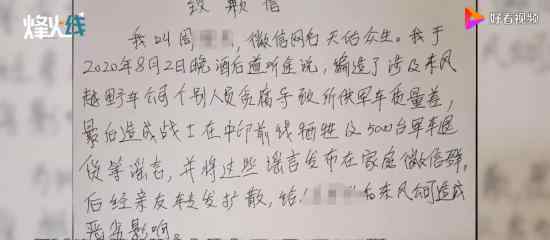 烽火线
好看视频
致歉信
我叫周，微信网名天的众生。我于
2020年8月2日晚酒后道听途说，编造了涉及东风
越野车公司个别人员贪腐导致所供军车质量差，
最后造成战士在中印前线牺牲及5000台军车退
货等谣言，并将这些谣言发布在家庭微信群，
后经亲友转发扩散，给和东风公司造成
恶劣影响